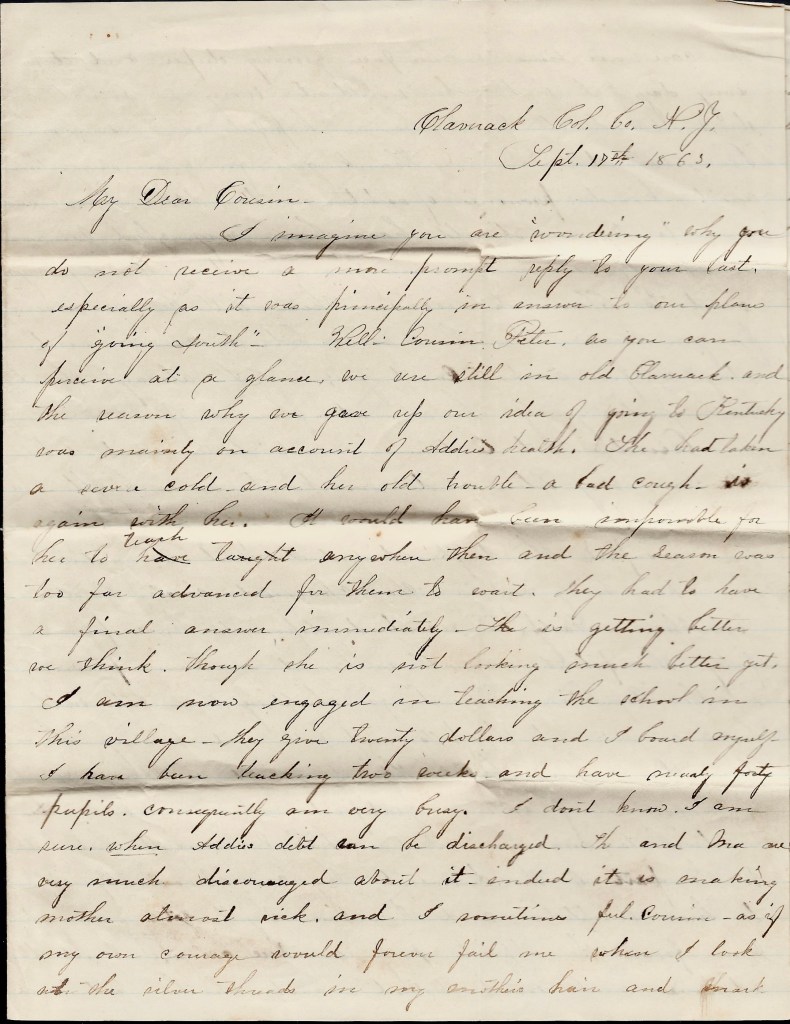 Claverack Col. Co. N.Y.
Sept. 17th 1863.
My Dear Cousin-
I imagine you are "wondering" why you
do not receive a more prompt reply to your last,
especially as it was principally in answer to our plans
of "going South"- Well- Cousin Peter, as you can
perceive at a glance, we are still in old Claverack. and
the reason why we gave up our idea of going to Kentucky
was mainly on account of Addies health. She had taken
a severe cold- and her old trouble- a bad cough- is
again with her. It would have been impossible for
teach
her to have taught anywhere then and the season was
too far advanced for them to wait. They had to have
a final answer immediately- She is getting better
we think. though she is not looking much better yet.
I am now engaged in teaching the school in
this village- they give twenty dollars and I board myself-
I have been teaching two weeks and have nearly forty
pupils. consequently am very busy. I dont know. I am
sure. when Addies debt can be discharged. and Ma are
very much discouraged about it- indeed it is making
mother almost sick. and I sometimes feel. Cousin- as if
my own courage would forever fail me when I look
at the silver threads in my mothers hair and